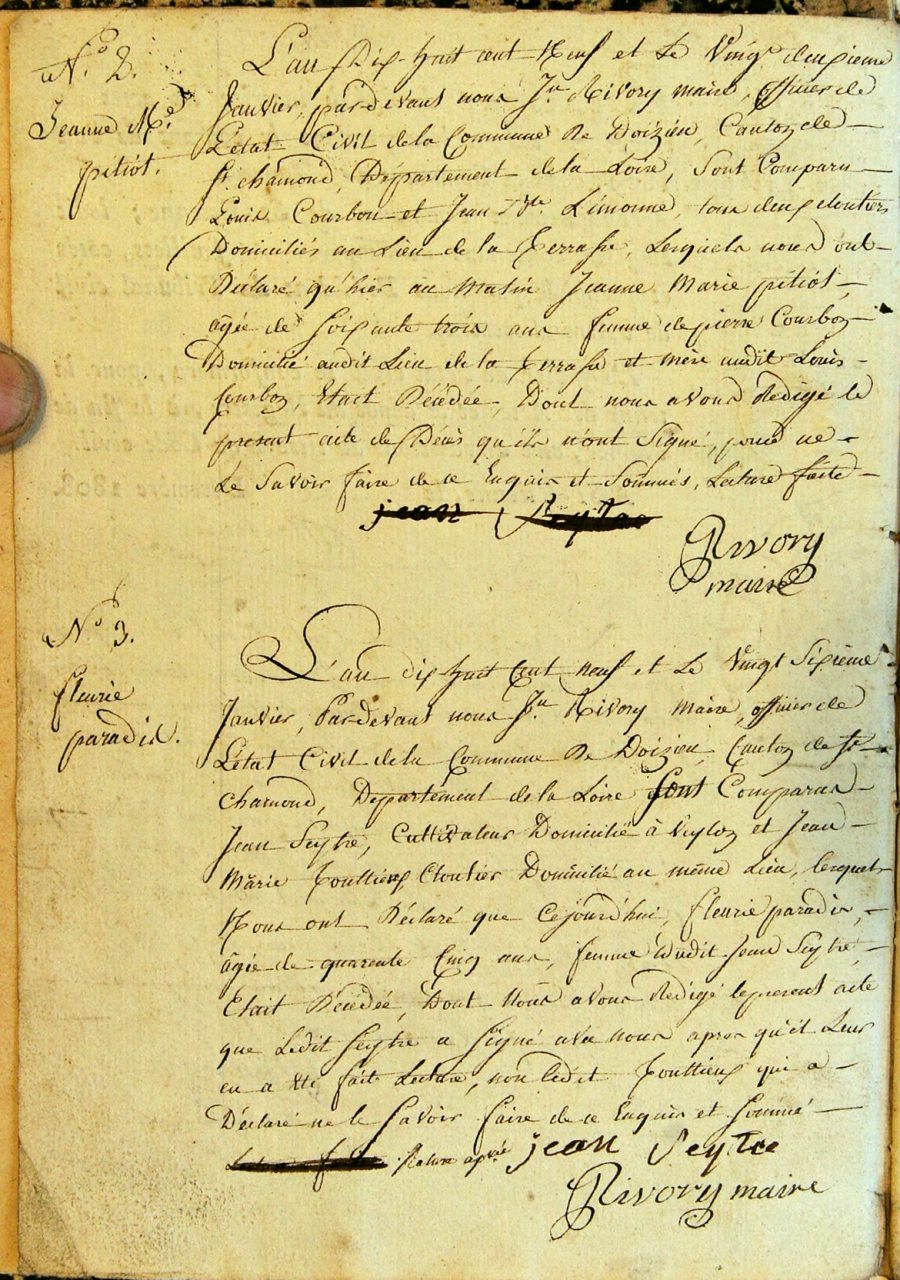 N.o 2.
Jeanne M.e
pitiot.
L'an Dix-huit cent Neuf et Le Vingt deuxieme
Janvier, pardevant nous J.n Rivory maire, officier de
L'état Civil de la Commune De Doizieu, Canton de
St. chamond, Département de la Loire, Sont Comparu
Louis Courbon et Jean Limonne, tous deux cloutiers
Domiciliés au Lieu de la Terrasse, Lesquels nous ont
Déclaré qu'hier au Matin Jeanne Marie pitiot,
âgée de soixante trois ans femme de pierre Courbon
Domicilié audit Lieu de la Terrasse et mère audit Louis
Courbon, Etait Décédée, Dont nous avons Redigé le
present acte de Décès qu'ils n'ont Signé, pour ne
Le Savoir faire de ce Enquis et Sommés, Lecture faite
jean Seytre
Rivory
maire
N.o 3.
fleurie
paradis.
L'an dix huit Cent neuf et Le Vingt Sixième
Janvier, Pardevant nous J.n Rivory Maire, officier de
L'état Civil de la Commune De Doizieu, Canton de St.
chamond, Département de la Loire Sont Comparus
Jean Seytre, Cultivateur Domicilié à Veylon et Jean
Marie Cloutier Domicilié au même Lieu, lesquels
Nous ont Déclaré que Cejourd'hui, fleurie paradis,
âgée de quarente Cinq ans, femme dudit Jean Seytre,
Etait Décédée, Dont Nous avons Redigé le present acte
que Ledit Seytre a Signé avec nous apres qu'il Leur
en a été fait Lecture, non Ledit qui a
Déclaré ne le Savoir faire de ce Enquis et Sommé
jean Seytre
Rivory maire